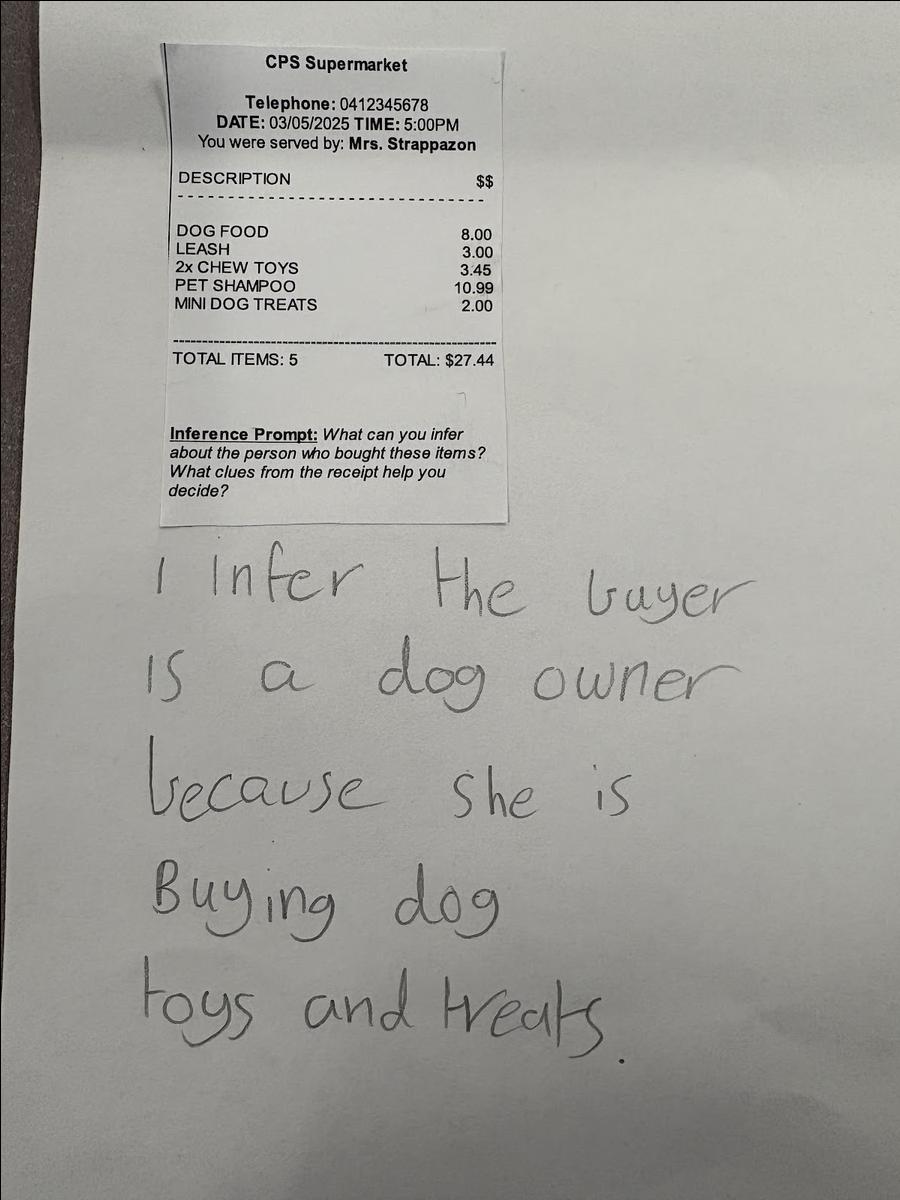 CPS Supermarket
Telephone: 0412345678
DATE: 03/05/2025 TIME: 5:00PM
You were served by: Mrs. Strappazon
DESCRIPTION $$
--------------------------------
DOG FOOD 8.00
LEASH 3.00
2x CHEW TOYS 3.45
PET SHAMPOO 10.99
MINI DOG TREATS 2.00
--------------------------------
TOTAL ITEMS: 5 TOTAL: $27.44
Inference Prompt: What can you infer
about the person who bought these items?
What clues from the receipt help you
decide?
I Infer the buyer
is a dog owner
because she is
Buying dog
toys and treats.